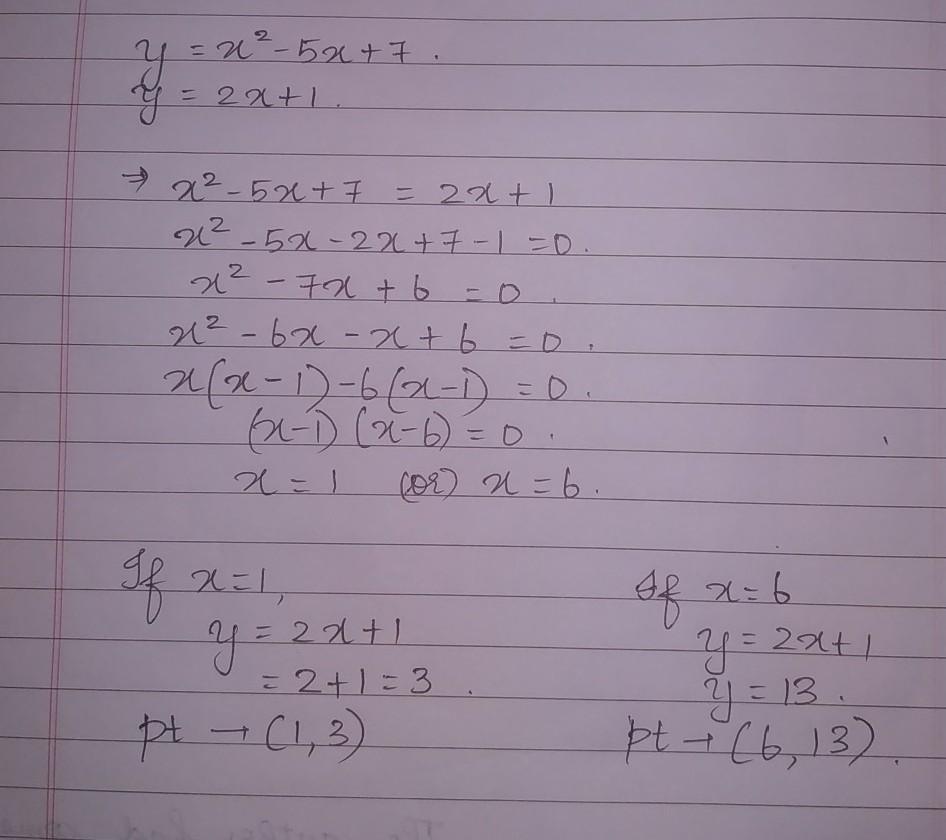 y = x² - 5x + 7 .
y = 2x + 1 .
→ x² - 5x + 7 = 2x + 1
x² - 5x - 2x + 7 - 1 = 0 .
x² - 7x + 6 = 0 .
x² - 6x - x + 6 = 0 .
x(x - 1) - 6(x - 1) = 0 .
(x-1) (x-6) = 0 .
x = 1 (or) x = 6 .
If x = 1,
y = 2x + 1
= 2 + 1 = 3 .
pt → (1, 3)
If x = 6
y = 2x + 1
y = 13 .
pt → (6, 13) .